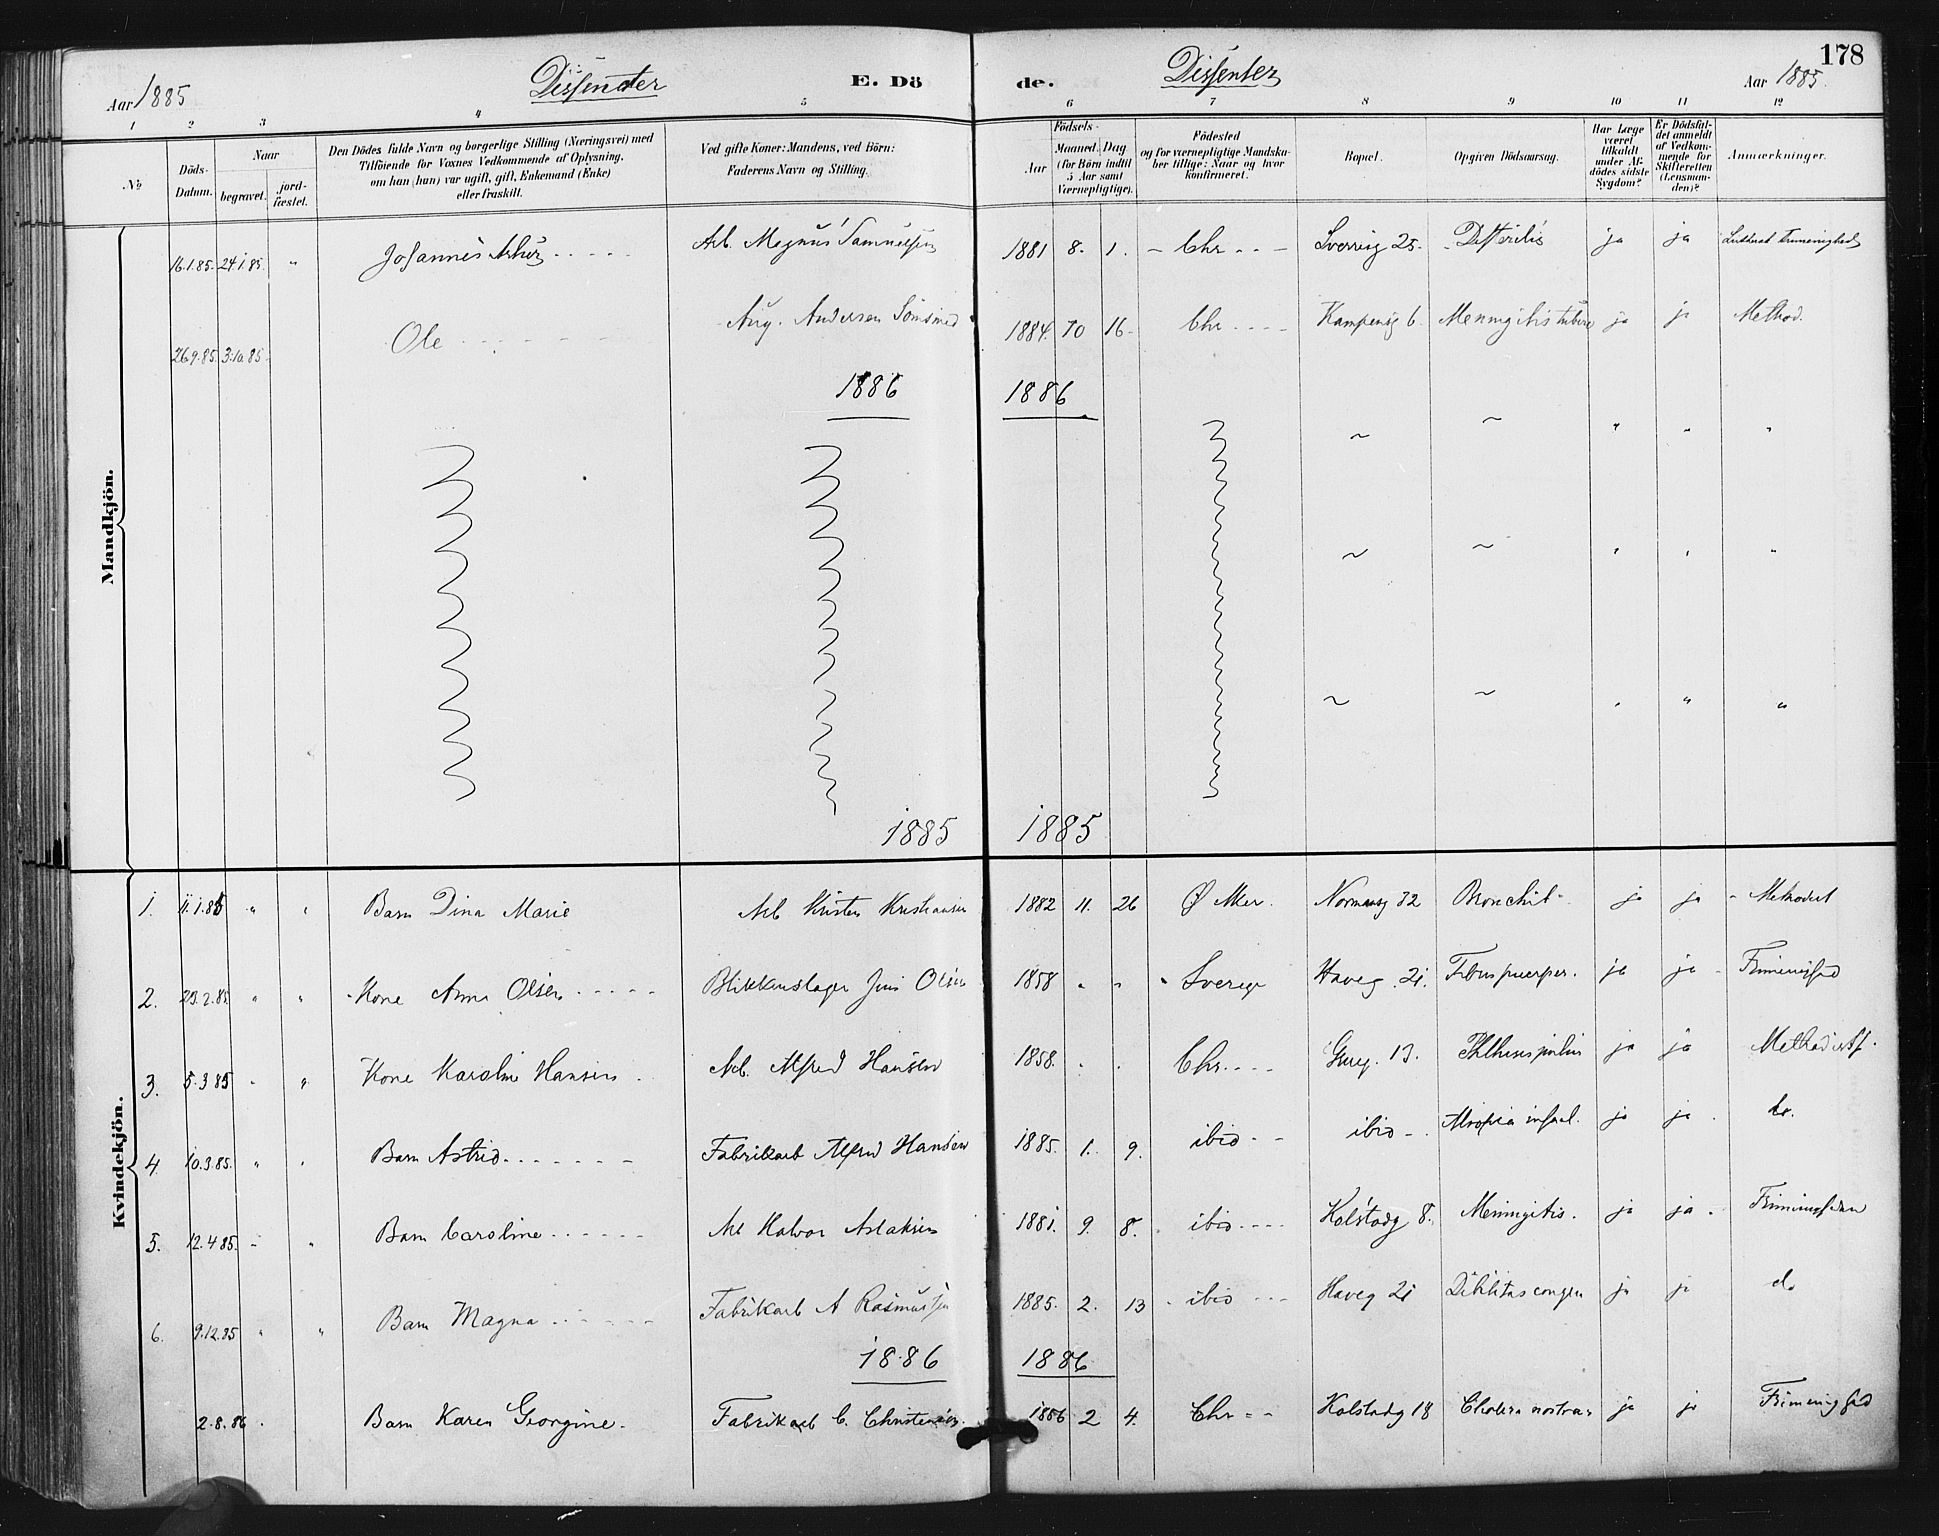 178
Aar 1885 Dissender E. Dö de. Dissenter Aar 1885.
1 2 3 4 5 6 7 8 9 10 11 12
№
Döds-Datum.
Naar
begravet.
jord-fæstet.
Den Dödes fulde Navn og borgerlige Stilling (Næringsvei) med
Tilföiende for Voxnes Vedkommende af Oplysning,
om han (hun) var ugift, gift, Enkemand (Enke)
eller fraskilt.
Ved gifte Koner: Mandens, ved Börn:
Faderens Navn og Stilling.
Födsels-
Aar
Maaned. Dag
(for Börn indtil
5 Aar samt
Værnepligtige).
Födested
og for værnepligtige Mandska-
ber tillige: Naar og hvor
konfirmeret.
Bopæl.
Opgiven Dödsaarsag.
Har Læge
været
tilkaldt
under Af-
dödes sidste
Sygdom?
Er Dödsfal-
det anmeldt
af Vedkom-
mende for
Skifteretten
(Lensman-
den)?
Anmærkninger.
Mandkjön.
16.1.85. 24.1.85. " Johannes Arthur Arb. Magnus Samuelsen 1881 8. 1. Chr. 25. Difteritis ja ja
26.9.85. 3.10.85. Ole Aug. Andersen 1884. 10 16 Chr. Kampensg 6. Meningitis tuberc ja ja Method.
1886 1886
1885 1885
Kvindekjön.
1. 11.1.85 " " Barn Dina Marie Arb Kristen Kristiansen 1882 11. 26 Ø Aker. Normansg 32 Bronchit ja ja Methodist
2. 23.2.85 " " Kone Anna Olsen Blikkenslager Jens Olsen 1858 " " Sverige Haveg. 21. Febris puerper. ja ja
3. 5.3.85 " " Kone Karoline Hansen Arb. Alfred Hansen 1858. Chr. 13. ja ja Methodistsf.
4 10.3.85. " " Barn Astrid Fabrikarb Alfred Hansen 1885. 1. 9. ibid ibid Atrophia infant. ja ja do.
5. 12.4.85. " " Barn Caroline Arb Halvor Aslaksen 1881. 9. 8. ibid Kolstadg 8. Meningitis. ja ja
6. 9.12.85 " " Barn Magna Fabrikarb A Rasmussen 1885. 2. 13 ibid Haveg 21 Debilitas congen ja ja do
1886 1886
2.8.86 Barn Karen Georgine. Fabrikarb C. Christensen. 1886 2 4. Chr Kolstadg 18 Cholera nostras ja ja